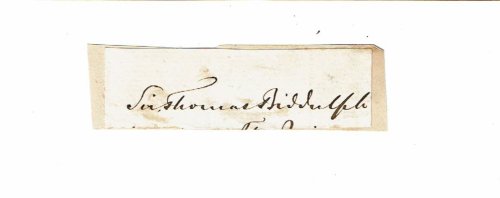 Sir Thomas Biddulph